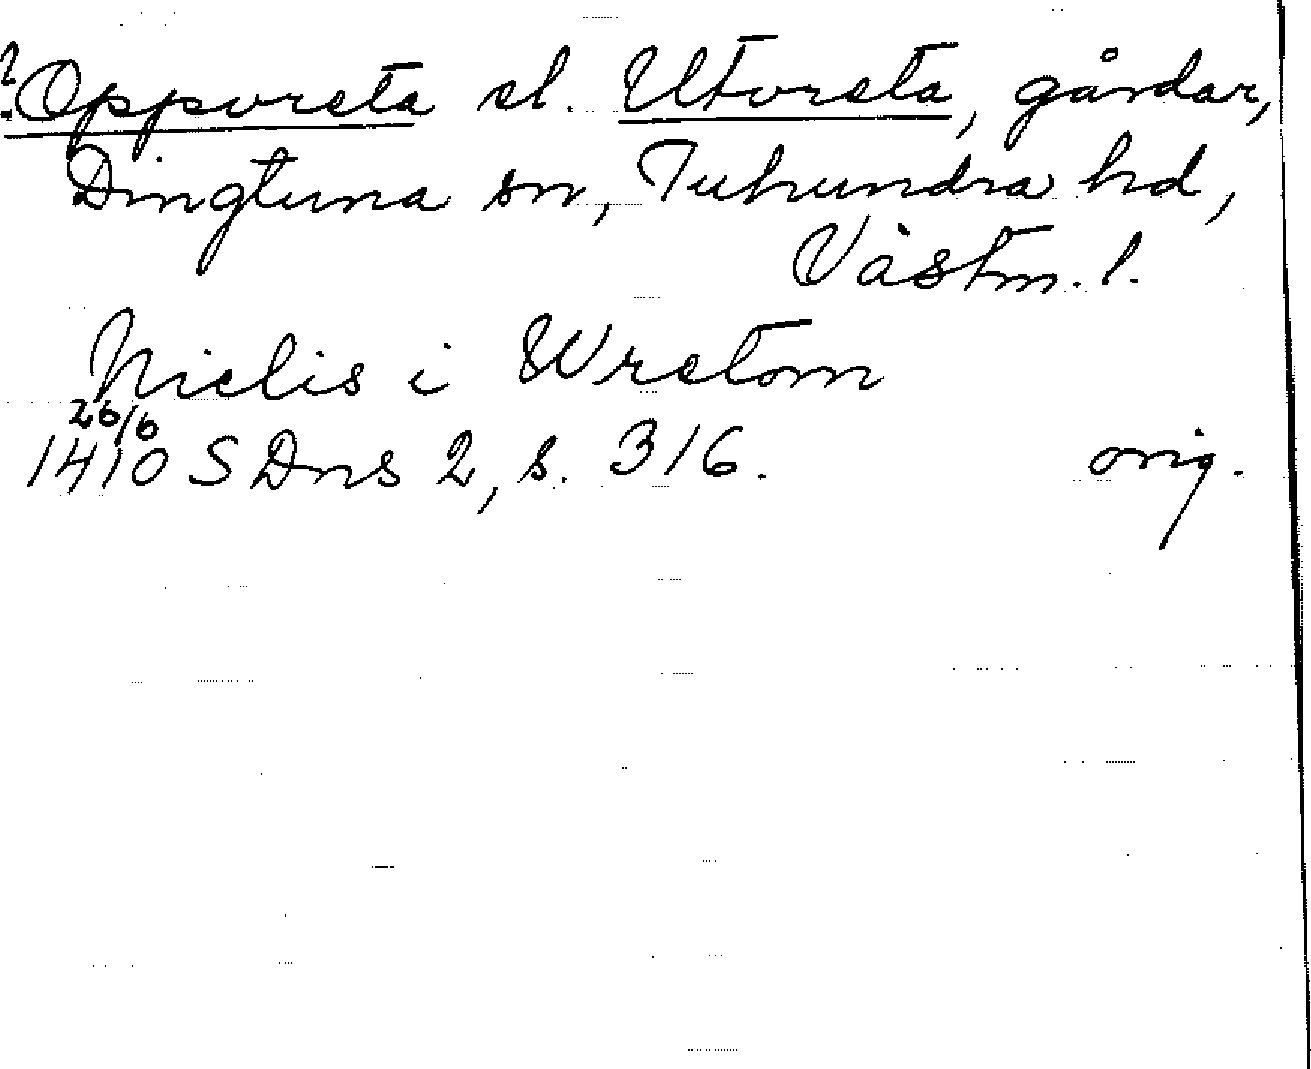 ? Oppvreta el. Utvreta, gårdar,
Dingtuna sn, Tuhundra hd,
Västm. l.
Niclis i Wretom
26/6
1410 SDns 2, s. 316. orig.